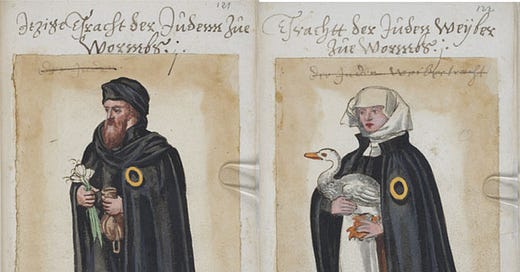 Jtzige Tracht der Judenn Zue
Wormbs
Trachtt der Juden Weyber
Zue Wormbs
der Juden Weibertracht